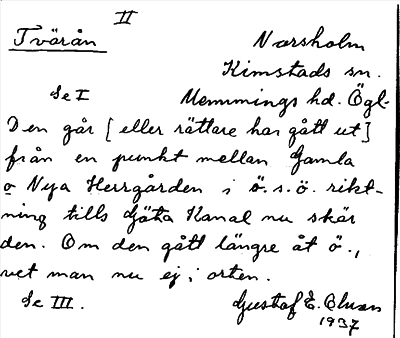 II
Tvärån Norsholm
Kimstads sn.
Se I Memmings hd. Ögl.
Den går [eller rättare har gått ut]
från en punkt mellan Gamla
o Nya Herrgården i ö.s.ö. rikt-
ning tills Göta Kanal nu skär
den. Om den gått längre åt ö.,
vet man nu ej i orten.
Se III. Gustaf E.
1937